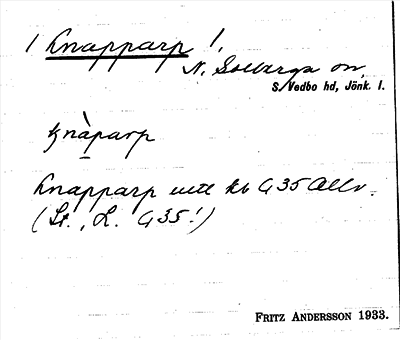 ! Knapparp !
N. Solberga sn,
S. Vedbo hd, Jönk. l.
knàparp
Knapparp utt kb G35 Allv.
(St., L. G35!)
FRITZ ANDERSSON 1933.